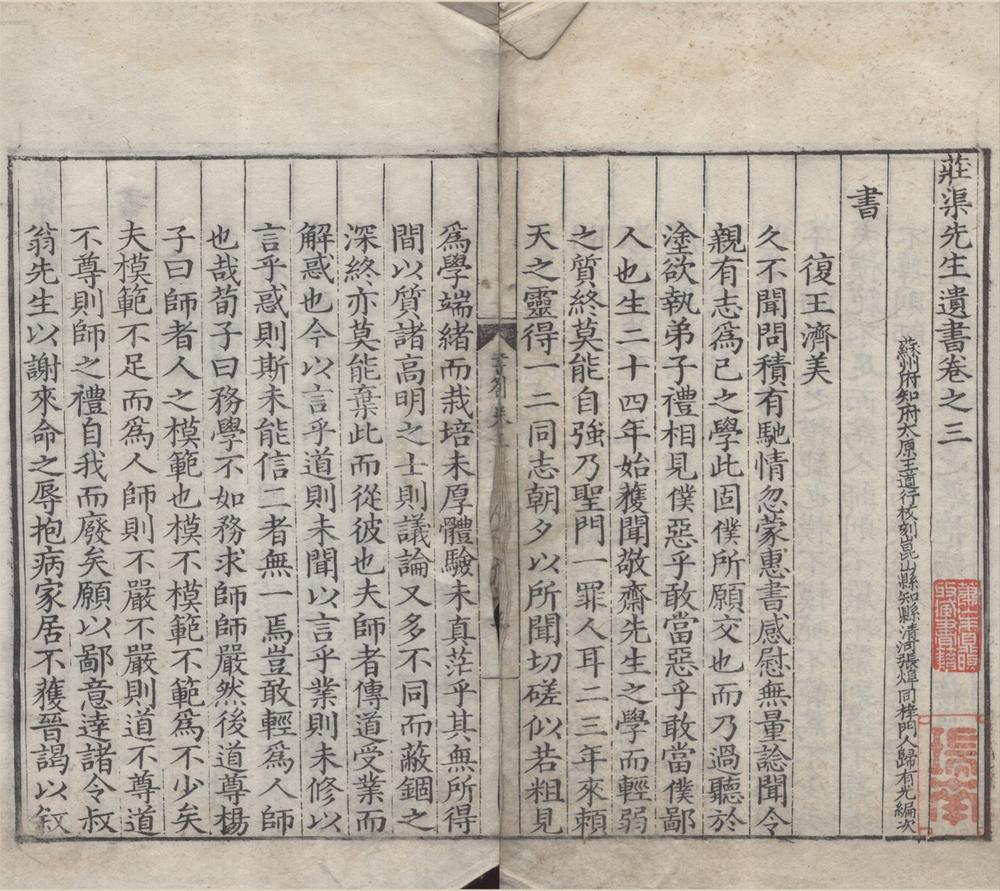 莊渠先生遺書卷之三
蘇州府知府太原王道行校刻崑山縣知縣清河張焯同梓門人歸有光編次
書
復王濟美
久不聞問積有馳情忽蒙惠書感慰無量諗聞令
親有志爲己之學此固僕所願交也而乃過聽於
塗欲執弟子禮相見僕惡乎敢當惡乎敢當僕鄙
人也生二十四年始獲聞敬齋先生之學而輕弱
之質終莫能自強乃聖門一罪人耳二三年來頼
天之靈得一二同志朝夕以所聞切磋似若粗見
爲學端緒而栽培未厚體驗未真茫乎其無所得
間以質諸高明之士則議論又多不同而蔽錮之
深終亦莫能棄此而從彼也夫師者傳道受業而
解惑也今以言乎道則未聞以言乎業則未修以
言乎惑則斯未能信二者無一焉豈敢輕爲人師
也哉荀子曰務學不如務求師師嚴然後道尊楊
子曰師者人之模範也模不模範不範爲不少矣
夫模範不足而爲人師則不嚴不嚴則道不尊道
不尊則師之禮自我而廢矣願以鄙意逹諸令叔
翁先生以謝來命之辱抱病家居不獲晉謁以敘